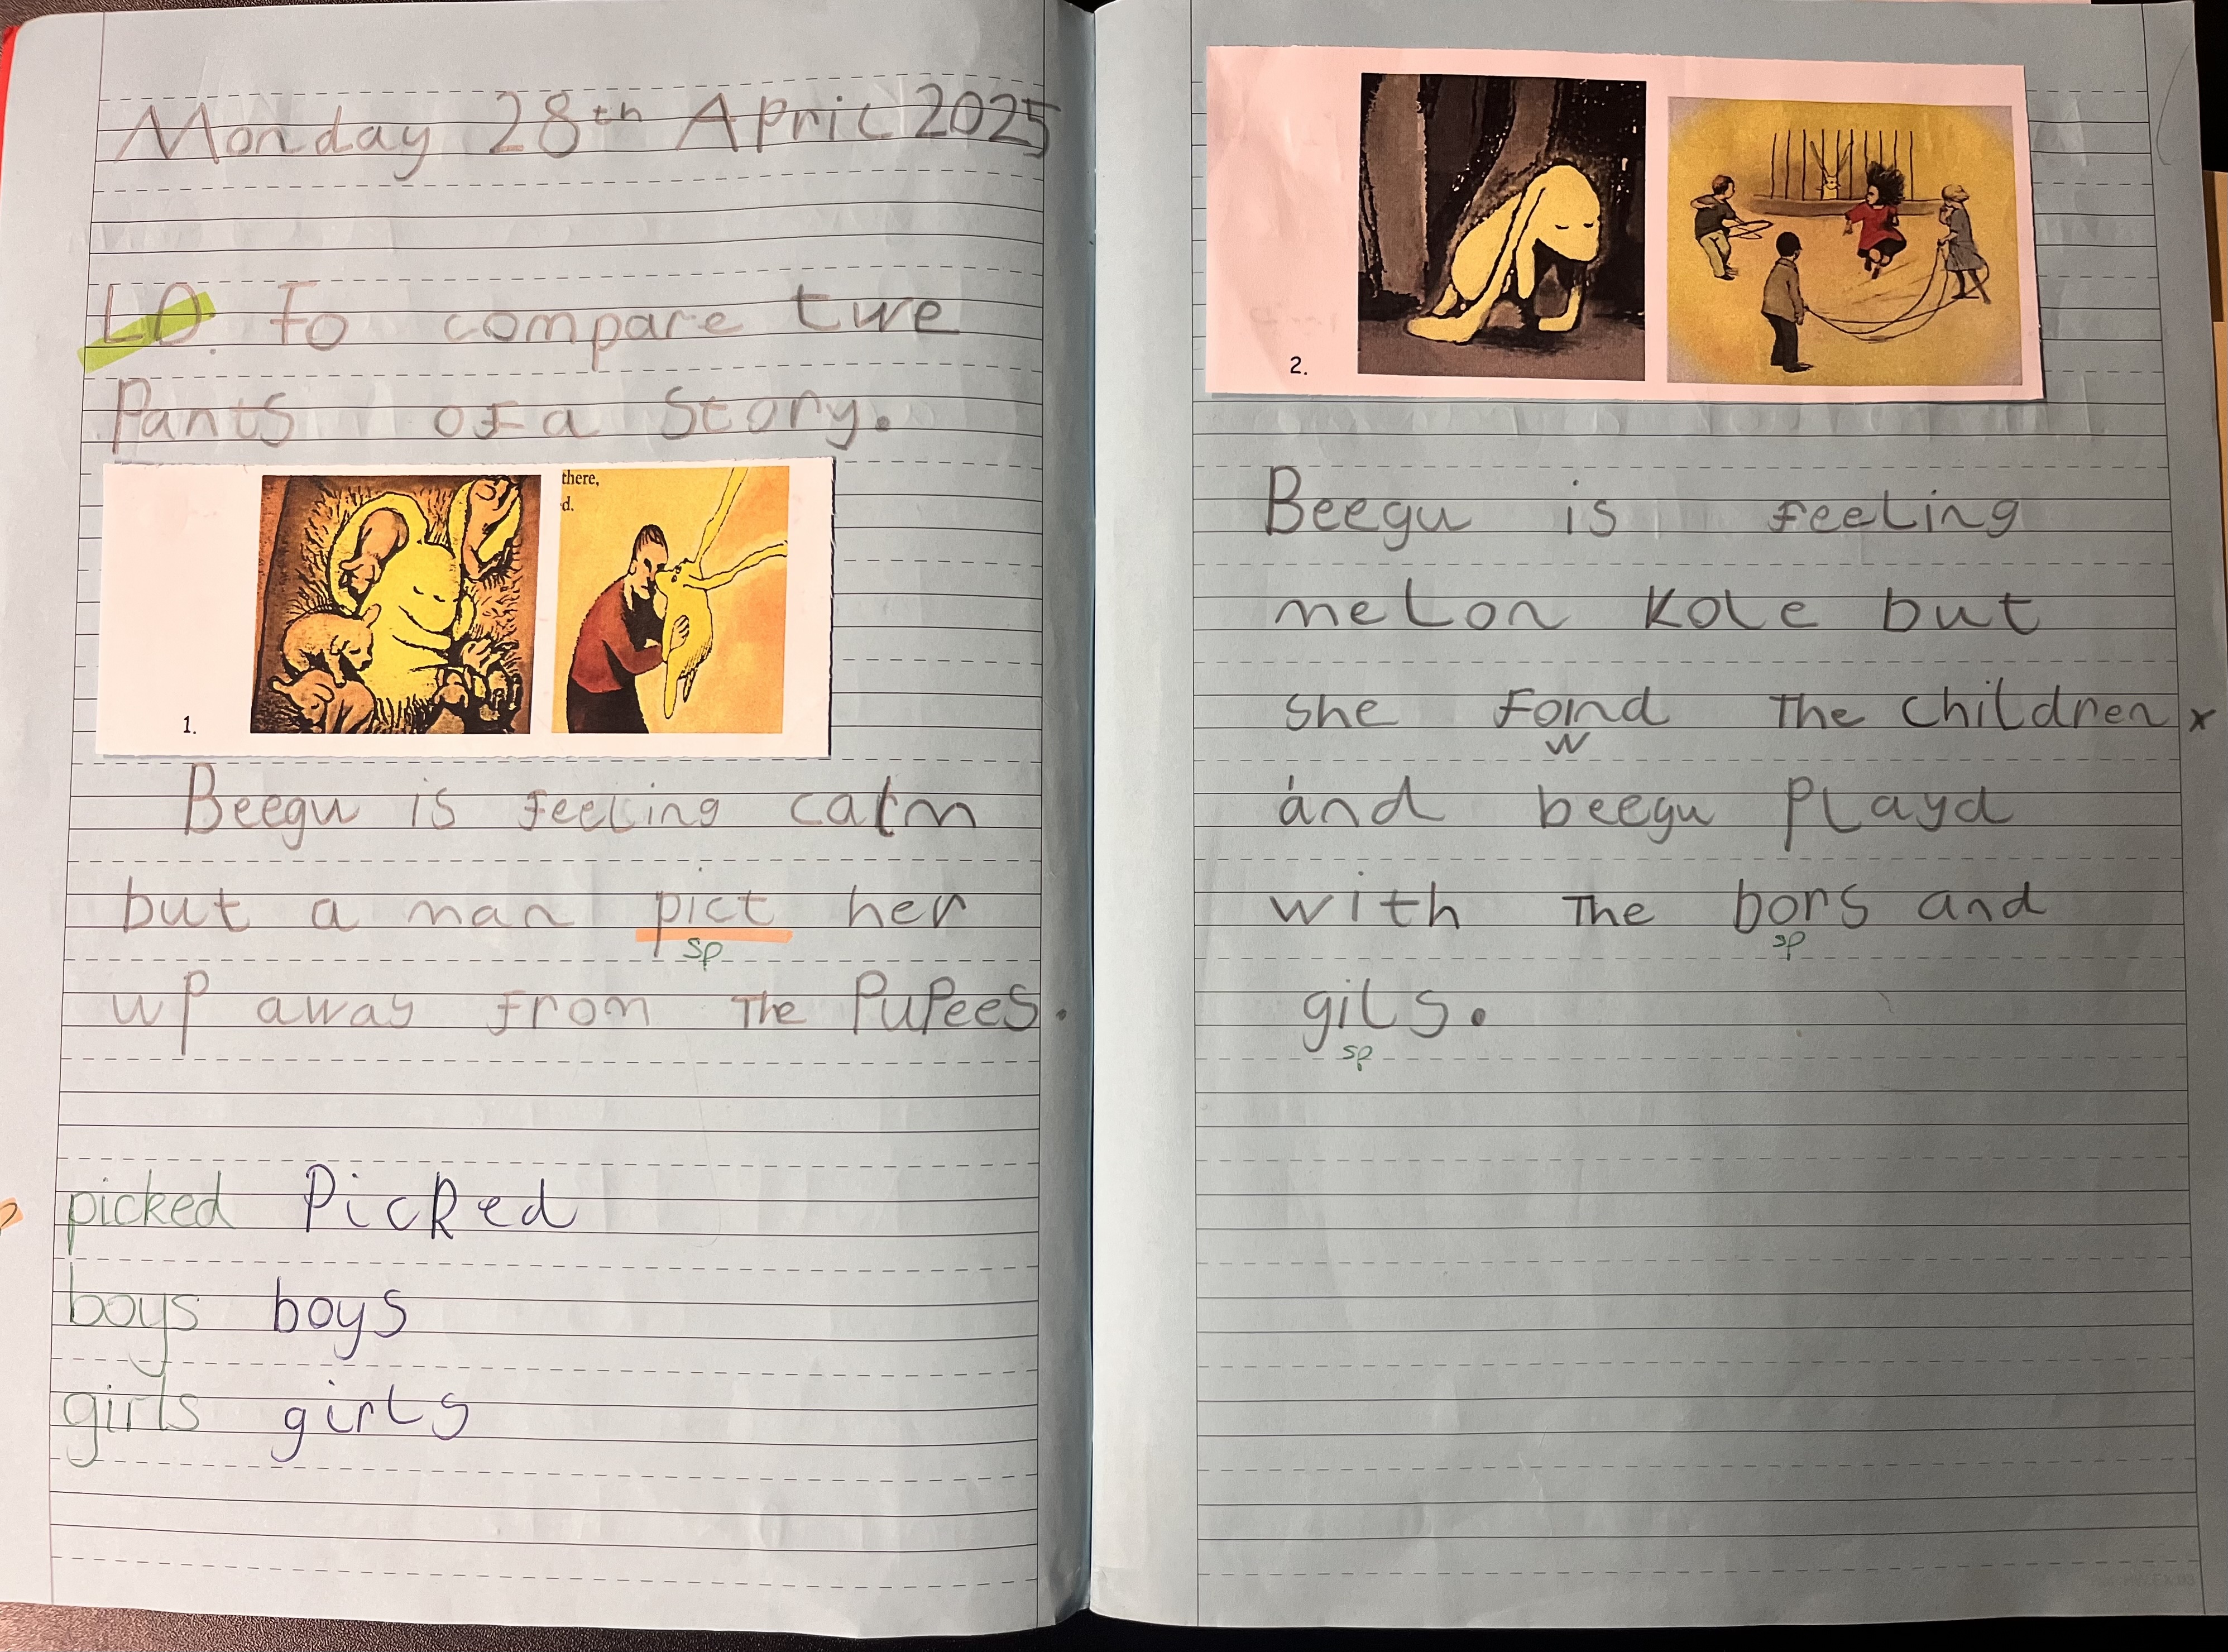 Monday 28th April 2025
LO. To compare twe
Parts of a Story.
there,
d.
1.
Beegu is feeling calm
but a man pict her
sp
up away from The Pupees.
picked Picked
boys boys
girls girls
2.
Beegu is feeling
melon kole but
she fond The children x
and beegu Playd
with The bors and
sp
gils.
sp